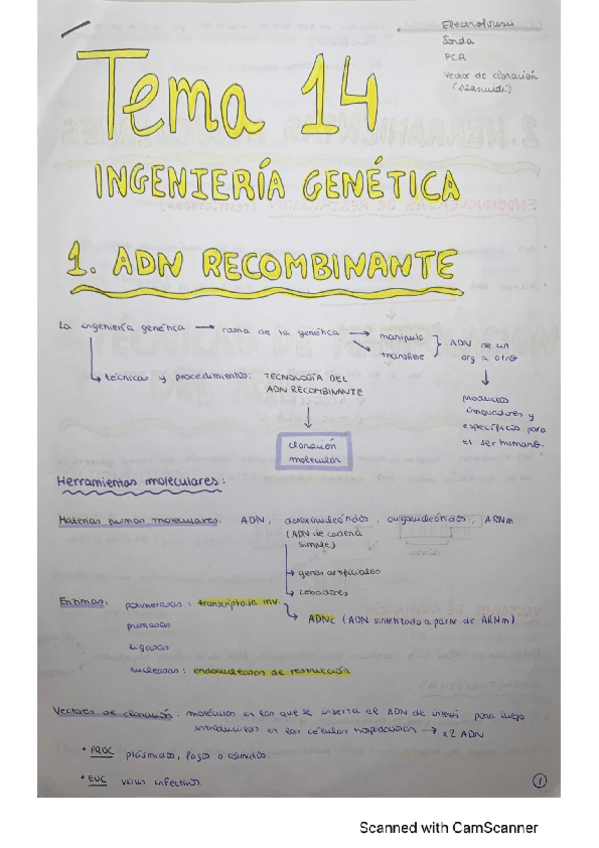 Electroforesis
Sonda
PCR
Vector de clonación
(plásmido)
Tema 14
INGENIERÍA GENÉTICA
1. ADN RECOMBINANTE
La ingeniería genética → rama de la genética → manipula
→ transfiere
ADN de un
org a otros
productos
innovadores y
específicos para
el ser humano.
técnicas y procedimientos: TECNOLOGÍA DEL
ADN RECOMBINANTE
clonación
molecular
Herramientas moleculares:
Materias primas moleculares. ADN, , ARNm
(ADN de cadena
simple)
→ genes artificiales
→ cebadores
Enzimas. polimerasas: transcriptasa inv.
→ ADNc (ADN sintetizado a partir de ARNm)
primasas
ligasas
nucleasas: endonucleasas de restricción
Vectores de clonación. moléculas en las que se inserta el ADN de interés para luego
introducirlos en las células hospedadoras → x2 ADN
• PROC plásmidos, fagos o cósmidos.
• EUC virus infectivos.
1
Scanned with CamScanner